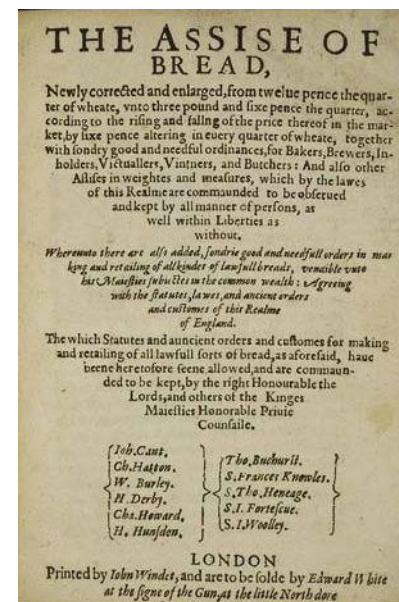 THE ASSISE OF
BREAD,
Newly corrected and enlarged, from twelue pence the quar-
ter of wheate, vnto three pound and sixe pence the quarter, ac-
cording to the rising and falling of the price thereof in the mar-
ket, by sixe pence altering in euery quarter of wheate, together
with sondry good and needful ordinances, for Bakers, Brewers, In-
holders, Victuallers, Vintners, and Butchers: And also other
Assises in weightes and measures, which by the lawes
of this Realme are commaunded to be obserued
and kept by all manner of persons, as
well within Liberties as
without.
Whereunto there are also added, sondrie good and needfull orders in ma
king and retailing of all kindes of lawfull breads, vendible vnto
his Maiesties subiectes in the common wealth: Agreeing
with the statutes, lawes, and ancient orders
and customes of this Realme
of England.
The which Statutes and auncient orders and customes for making
and retailing of all lawfull sorts of bread, as aforesaid, haue
beene heretofore seene, allowed, and are commaun-
ded to be kept, by the right Honourable the
Lords, and others of the Kinges
Maiesties Honorable Priuie
Counsaile.
Ioh. Cant. Tho. Buchurst.
Ch. Hatton. S. Frances Knowles.
W. Burley. S. Tho. Heneage.
H. Derby. S. I. Fortescue.
Cha. Howard. S. I. Woolley.
H. Hunsdon.
LONDON
Printed by Iohn Windet, and are to be solde by Edward White
at the signe of the Gun, at the little North dore